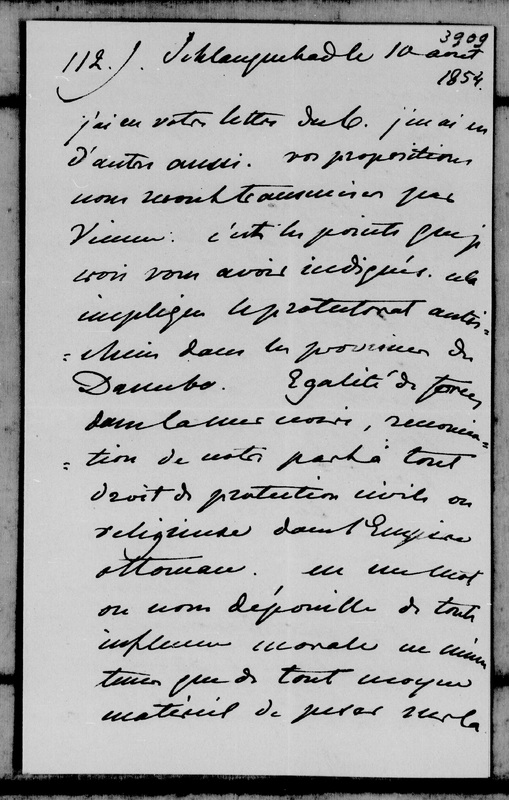 3909
112. J. Schlangenbad le 10 août
1854.
j'ai eu votre lettre du 6. j'en ai eu
d'autres aussi. vos propositions
nous seront transmises par
Vienne. c'est les points que je
crois vous avoir indiqués. cela
implique le protectorat autri=
=chien dans les provinces du
Danube. Egalité de forces
dans la mer noire, renoncia=
=tion de notre part à tout
droit de protection civile ou
religieuse dans l'Empire
ottoman. en un mot
on nous dépouille de toute
influence morale en même
tems que de tout moyen
matériel de peser sur la